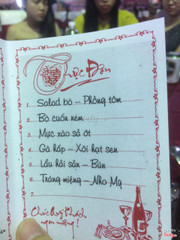 Thực Đơn
1. Salad bò - Phồng tôm
2. Bò cuốn nem
3. Mực xào sa ót
4. Gà hấp - Xôi hạt sen
5. Lẩu hải sản - Bún
6. Tráng miệng - Nho Mỹ
7.
8.
Chúc Quý Khách
ngon miệng!